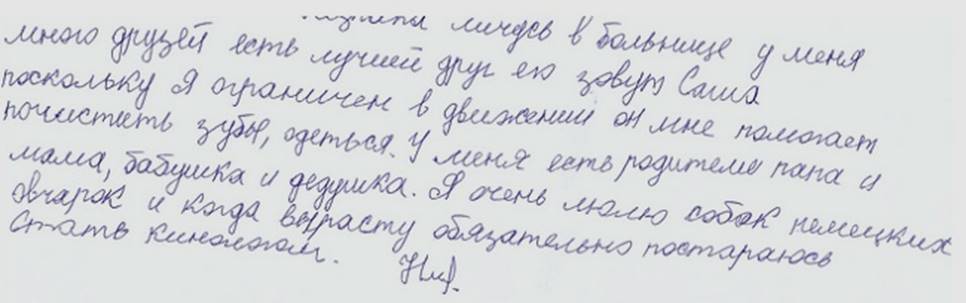 личусь в больнице у меня
много друзей есть лучший друг его зовут Саша
поскольку я ограничен в движении он мне помогает
почистить зубы, одеться. У меня есть родители папа и
мама, бабушка и дедушка. Я очень люлю собак немецких
овчарок и когда вырасту обязательно постараюсь
стать кинологом.